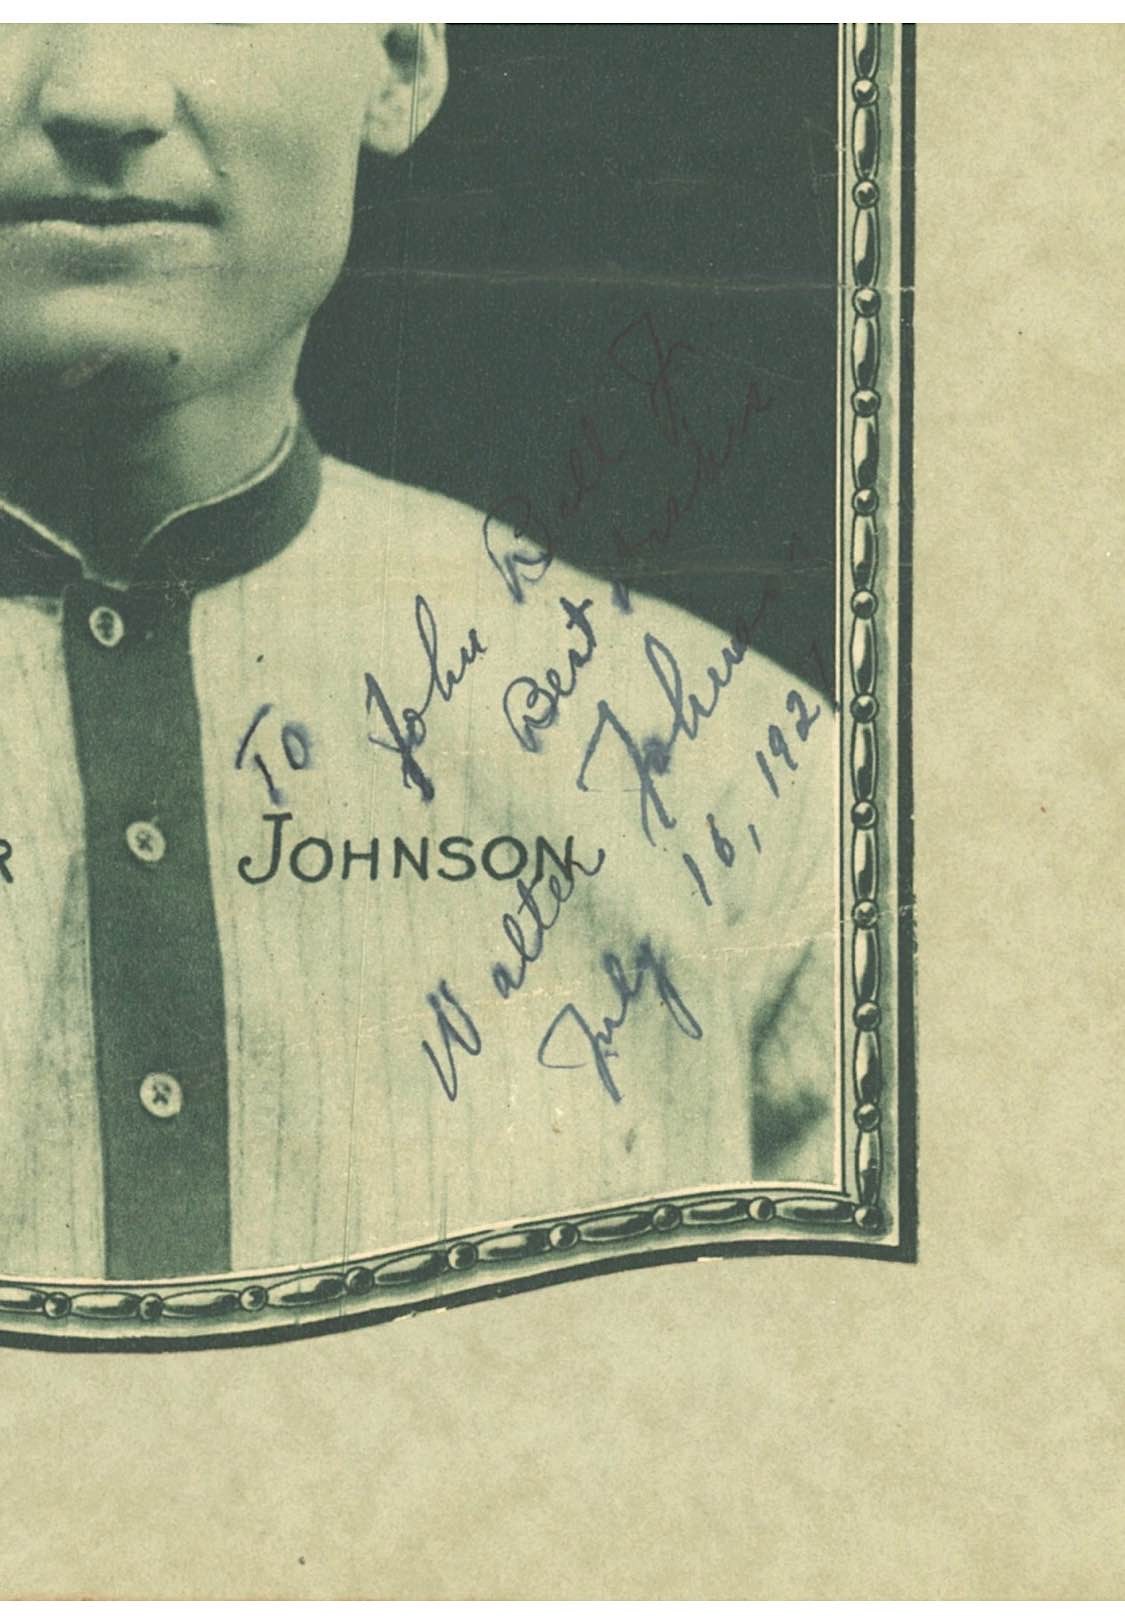 To John Ball Jr
Best Wishes
Walter Johnson
July 16, 192
R JOHNSON